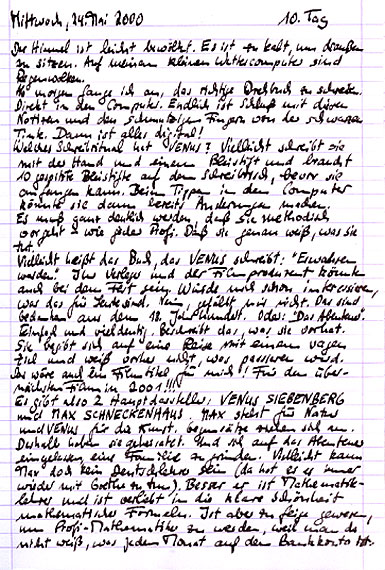 Mittwoch, 24. Mai 2000 10. Tag
Der Himmel ist leicht bewölkt. Es ist zu kalt, um draußen
zu sitzen. Auf meinem kleinen Wettercomputer sind
Regenwolken.
Ab morgen fange ich an, das richtige Drehbuch zu schreiben.
Direkt in den Computer. Endlich ist Schluß mit diesen
Notizen und den schmutzigen Fingern von der schwarzen
Tinte. Dann ist alles digital!
Welches Schreibritual hat VENUS? Vielleicht schreibt sie
mit der Hand und einem Bleistift und braucht
10 gespitzte Bleistifte auf dem Schreibtisch, bevor sie
anfangen kann. Beim Tippen in den Computer
könnte sie dann bereits Änderungen machen.
Es muß ganz deutlich werden, daß sie methodisch
vorgeht - wie jeder Profi. Daß sie genau weiß, was sie
tut.
Vielleicht heißt das Buch, das VENUS schreibt: "Erwachsen
werden". Ihr Verleger und der Filmproduzent könnten
auch bei dem Fest sein. Würde mich schon interessieren,
was das für Leute sind. Nein, gefällt mir nicht. Das sind
Gedanken aus dem 18. Jahrhundert. Oder: "Das Abenteuer".
Einfach und vieldeutig. Beschreibt das, was sie vorhat.
Sie begibt sich auf eine Reise mit einem vagen
Ziel und weiß vorher nicht, was passieren wird.
Das wäre auch ein Filmtitel für mich! Für den über-
nächsten Film in 2001!!!
Es gibt also 2 Hauptdarsteller. VENUS SIEBENBERG
und MAX SCHNECKENHAUS. MAX steht für Natur
und VENUS für die Kunst. Gegensätze ziehen sich an.
Deshalb haben sie geheiratet. Und sich auf das Abenteuer
eingelassen, eine Familie zu gründen. Vielleicht kann
Max doch kein Deutschlehrer sein (da hat er es immer
wieder mit Goethe zu tun). Besser er ist Mathematik-
lehrer und ist verliebt in die klare Schönheit
mathematischer Formeln. Ist aber zu feige gewesen,
um Profi-Mathematiker zu werden, weil man da
nicht weiß, was jeden Monat auf dem Bankkonto ist.